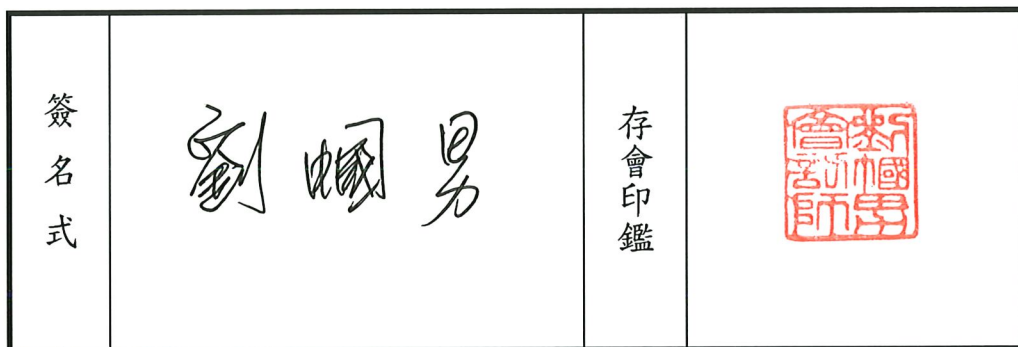 簽名式
劉幗男
存會印鑑
劉幗男
會計師